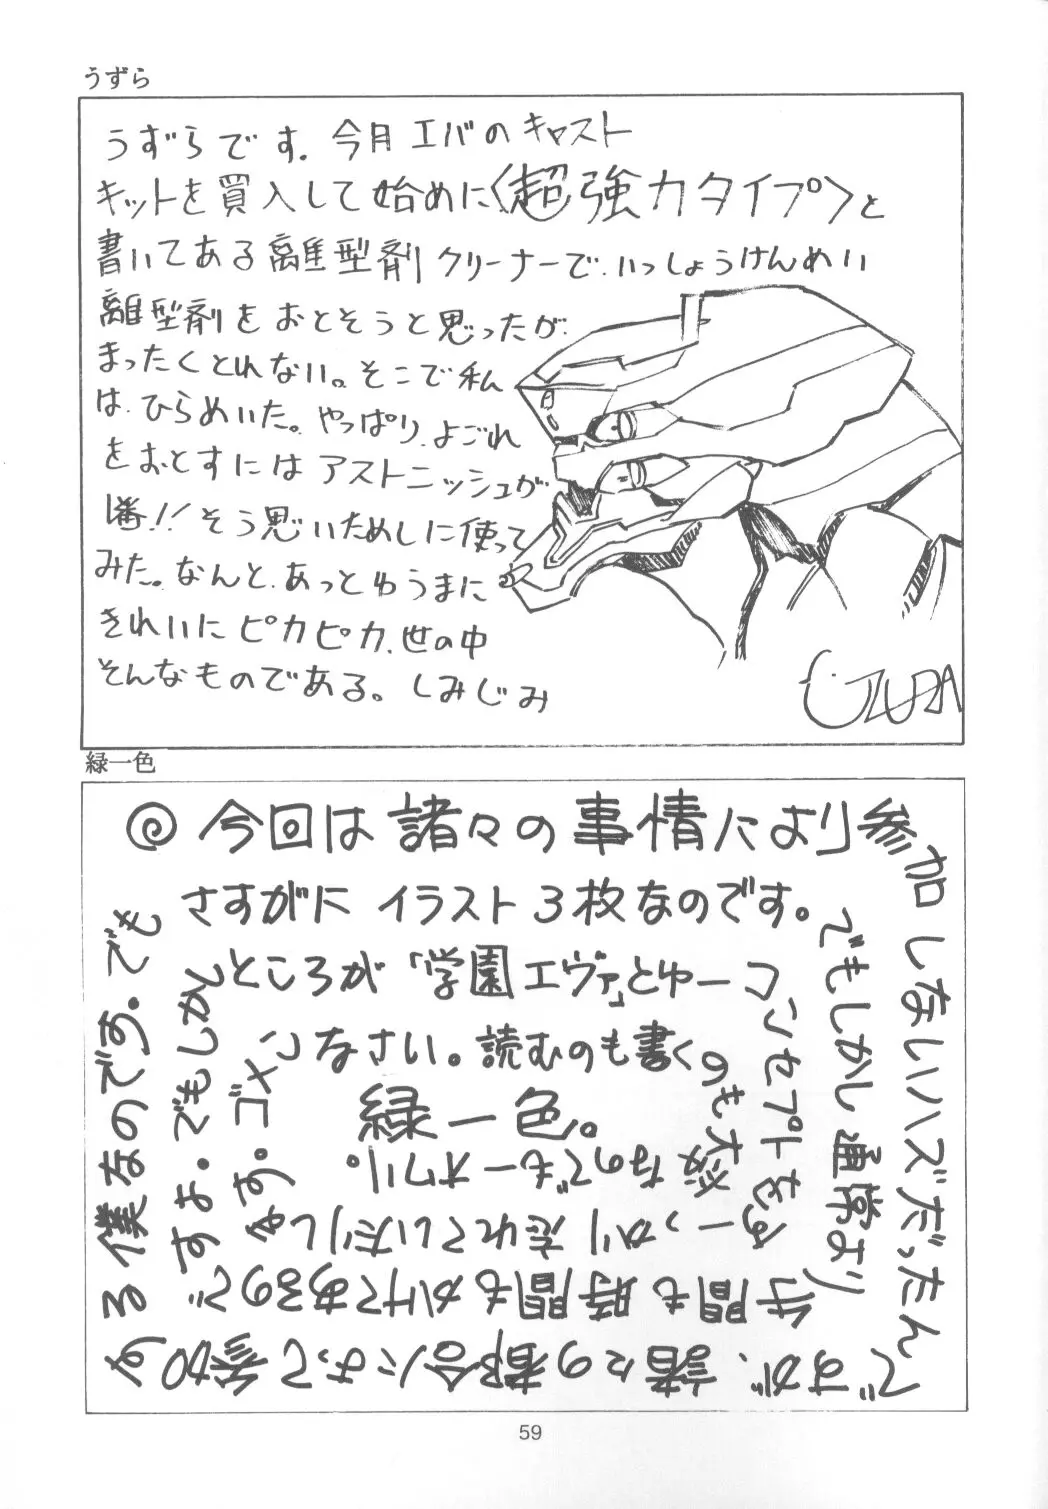 うずら
うずらです. 今月エバのキャスト
キットを買入して始めに〈超強力タイプ〉と
書いてある離型剤クリーナーで.いっしょうけんめい
離型剤をおとそうと思ったが.
まったくとれない。そこで私
は.ひらめいた。やっぱり.よごれ
をおとすにはアストニッシュが
1番!!そう思いためしに使って
みた。なんと.あっとゆうまに
きれいにピカピカ.世の中
そんなものである。しみじみ
UZURA
緑一色
◎今回は諸々の事情により参加しないハズだったん
ですが、諸々の都合によって参加
する僕なのです。でも
さすがにイラスト3枚なのです。
でもしかし通常より
手間も時間もかけてあるので
すよ。でもしかし
ところが「学園エヴァ」とゆーコ
ンセプトをす
っかり忘れていたりし
ます。ゴメン
なさい。読むのも書く
のも大変
なのでもーオワリ。
緑一色。
59